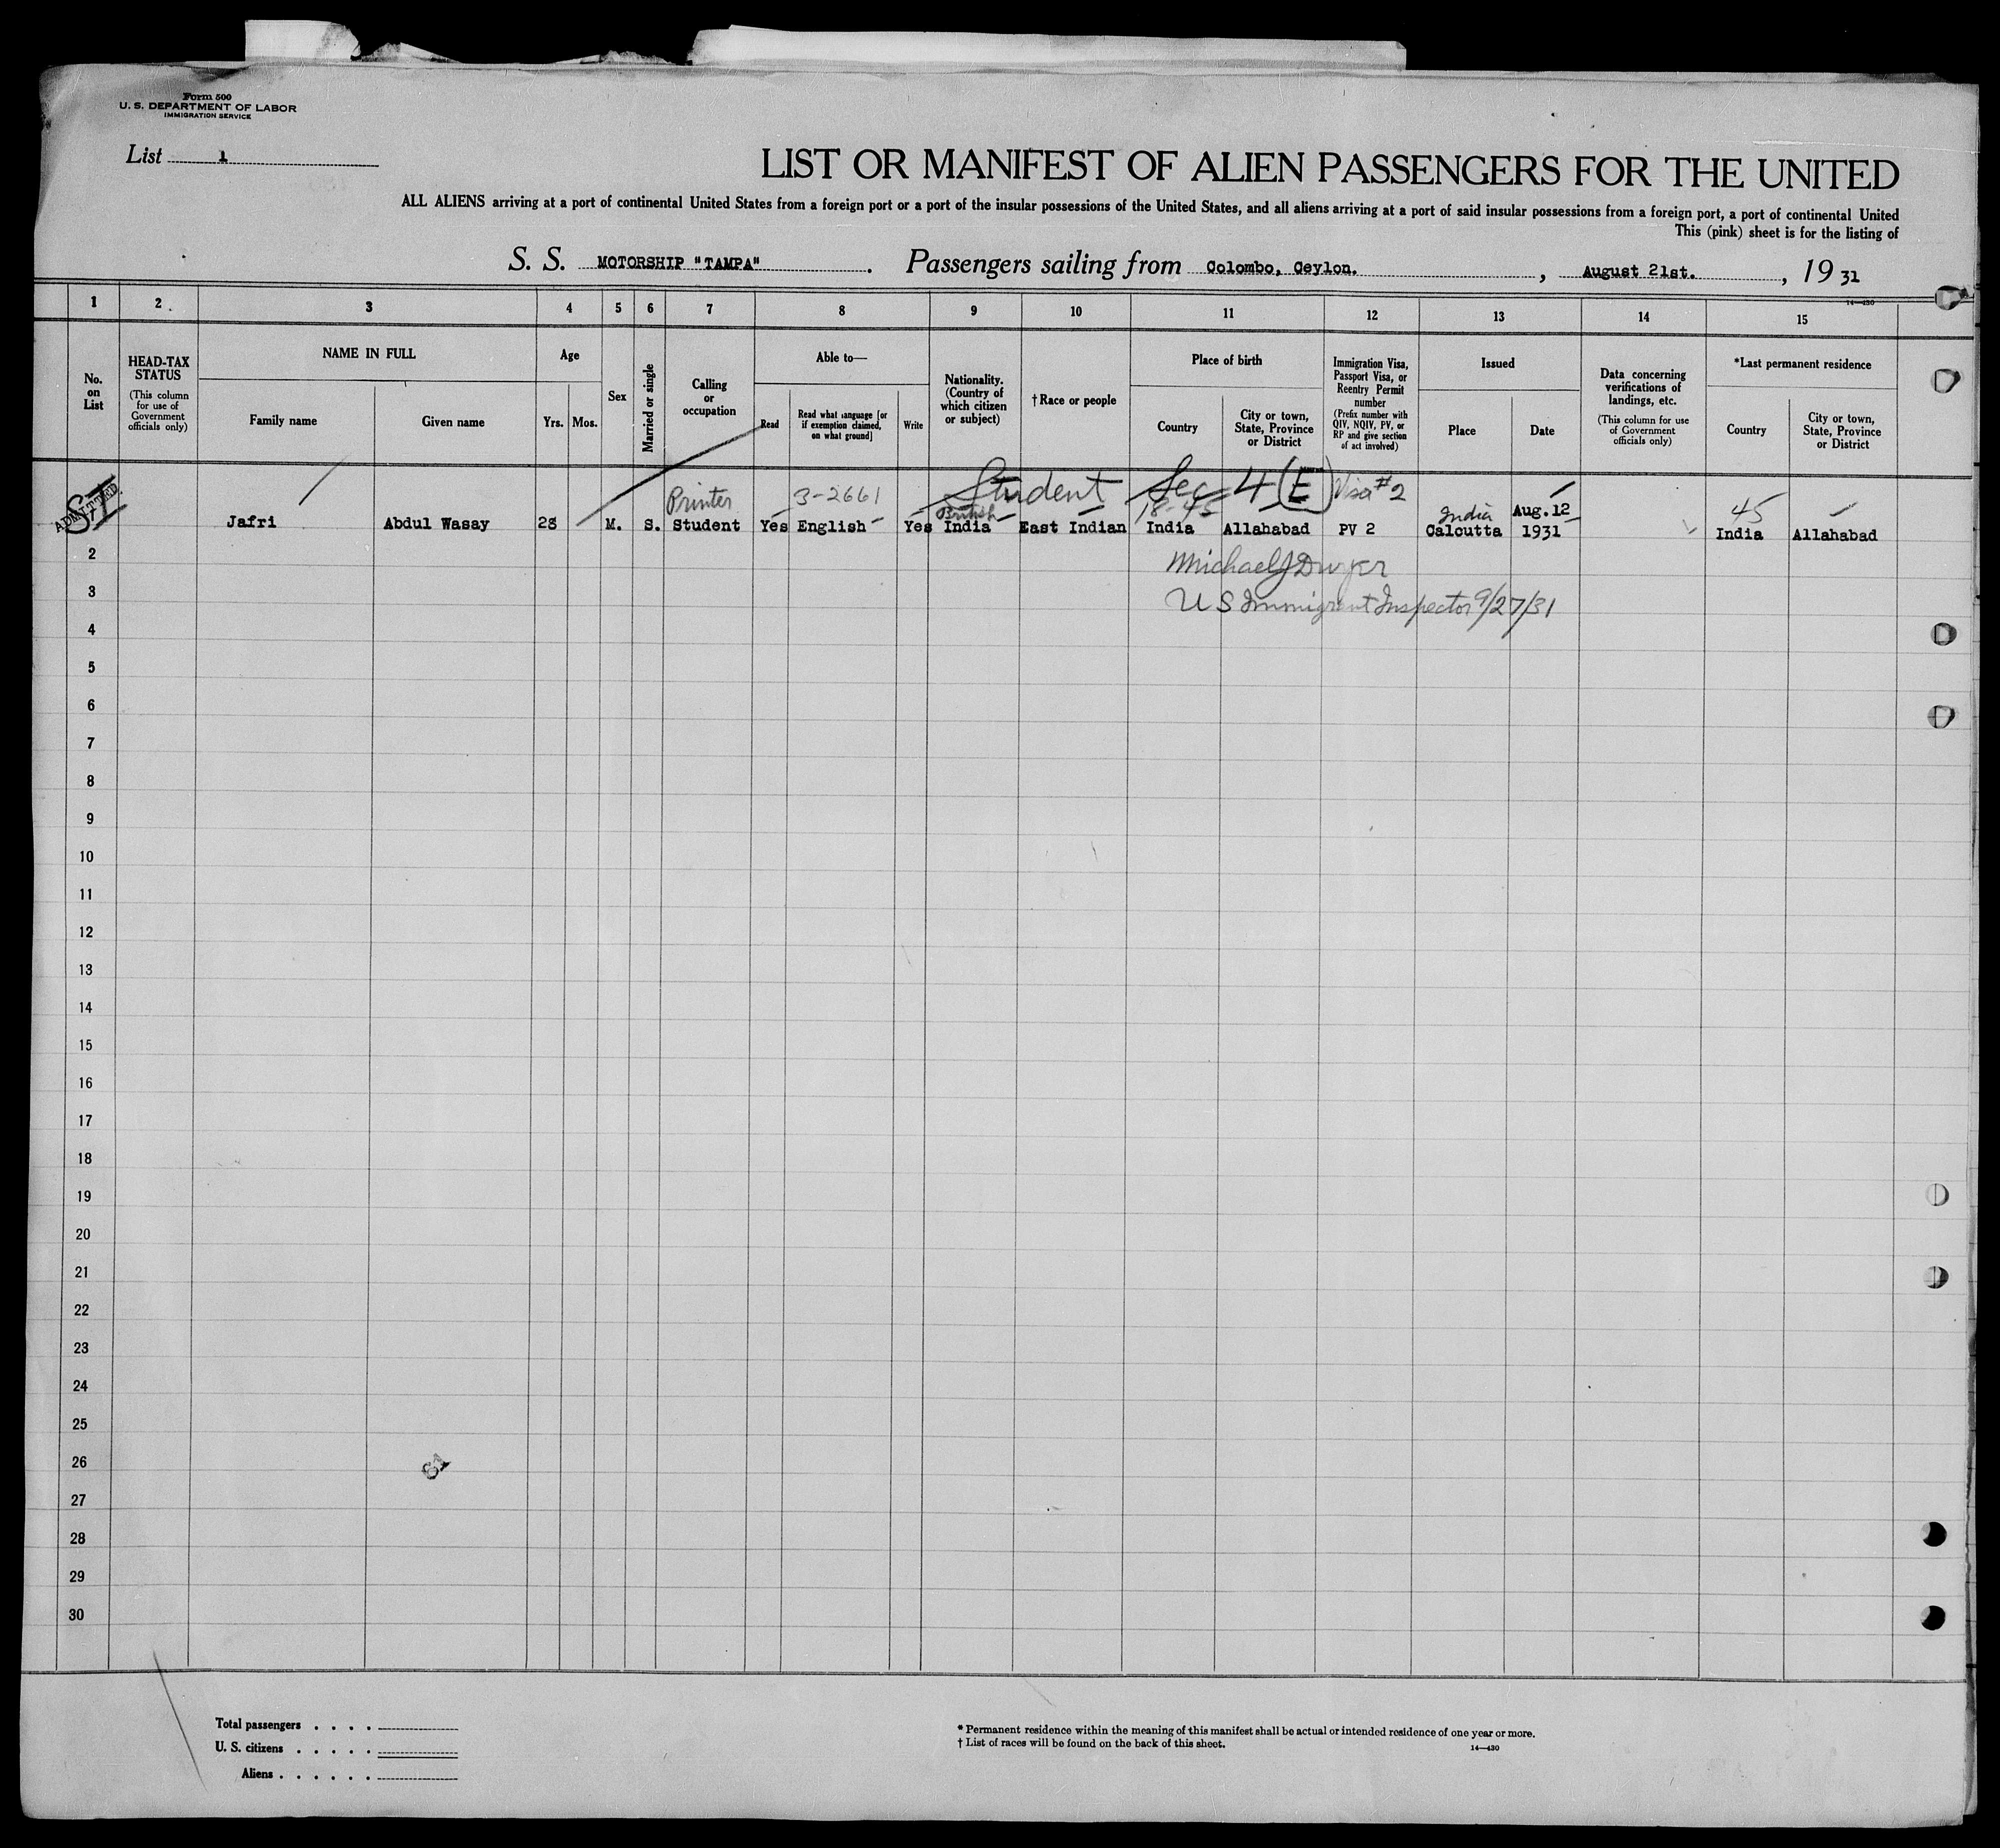 Form 500
U. S. DEPARTMENT OF LABOR
IMMIGRATION SERVICE
List 1
LIST OR MANIFEST OF ALIEN PASSENGERS FOR THE UNITED
ALL ALIENS arriving at a port of continental United States from a foreign port or a port of the insular possessions of the United States, and all aliens arriving at a port of said insular possessions from a foreign port, a port of continental United
This (pink) sheet is for the listing of
S. S. MOTORSHIP "TAMPA" . Passengers sailing from Colombo, Ceylon. , August 21st. , 19 31
14—430
1 2 3 4 5 6 7 8 9 10 11 12 13 14 15
No. on List
HEAD-TAX STATUS
(This column for use of Government officials only)
NAME IN FULL
Family name
Given name
Age
Yrs. Mos.
Sex
Married or single
Calling or occupation
Able to—
Read
Read what language [or if exemption claimed, on what ground]
Write
Nationality. (Country of which citizen or subject)
† Race or people
Place of birth
Country
City or town, State, Province or District
Immigration Visa, Passport Visa, or Reentry Permit number
(Prefix number with QIV, NQIV, PV, or RP and give section of act involved)
Issued
Place
Date
Data concerning verifications of landings, etc.
(This column for use of Government officials only)
*Last permanent residence
Country
City or town, State, Province or District
ADMITTED
SI
Printer 3-2661 Student Sec 4 (E) Visa #2
British 18-45 India Aug. 12 45
Jafri Abdul Wasay 28 M. S. Student Yes English Yes India East Indian India Allahabad PV 2 Calcutta 1931 India Allahabad
Michael J Dwyer
U S Immigrant Inspector 9/27/31
2
3
4
5
6
7
8
9
10
11
12
13
14
15
16
17
18
19
20
21
22
23
24
25
26
27
28
29
30
Total passengers . . . .
U. S. citizens . . . . .
Aliens . . . . . .
* Permanent residence within the meaning of this manifest shall be actual or intended residence of one year or more.
† List of races will be found on the back of this sheet.
14—430